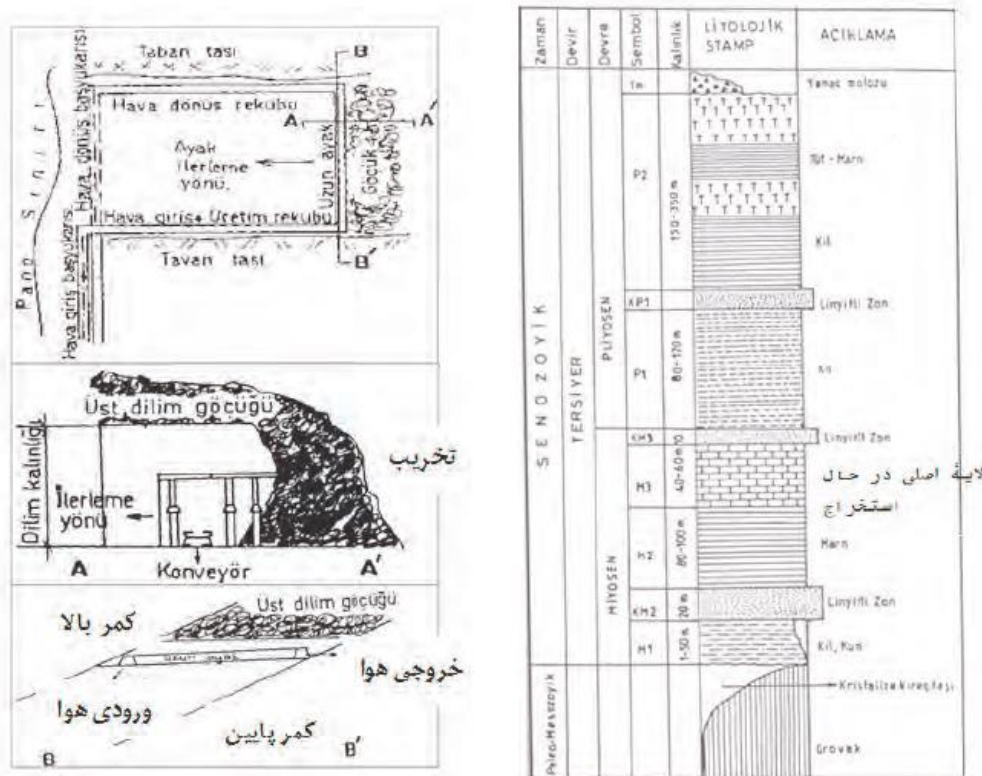 Taban taşı
B
Hava dönüş rekubu
A
A'
Pano Sınırı
Hava dönüş başyukarısı
Ayak
ilerleme
yönü.
Uzun ayak
Göçük
Hava giriş+ Üretim rekubu
B'
Tavan taşı
Hava giriş başyukarısı
Üst dilim göçüğü
تخریب
Dilim kalınlığı
İlerleme
yönü
A
A'
Konveyör
Üst dilim göçüğü
کمر بالا
خروجی هوا
ورودی هوا
کمر پایین
B
B'
Zaman
Devir
Devre
Sembol
Kalınlık
LİTOLOJİK
STAMP
AÇIKLAMA
SENOZOYİK
TERSİYER
PLİYOSEN
MİYOSEN
Yamaç molozu
P2
150-350 m
Tüf - Marn
Kil
KP1
Linyitli Zon
P1
80-120 m
Kil
KM3
10
Linyitli Zon
M3
40-60 m
لایهٔ اصلی در حال
استخراج
M2
80-100 m
Marn
KM2
20 m
Linyitli Zon
M1
1-50 m
Kil, Kum
Paleo-Mesozoyik
Kristalize kireçtaşı
Grovak